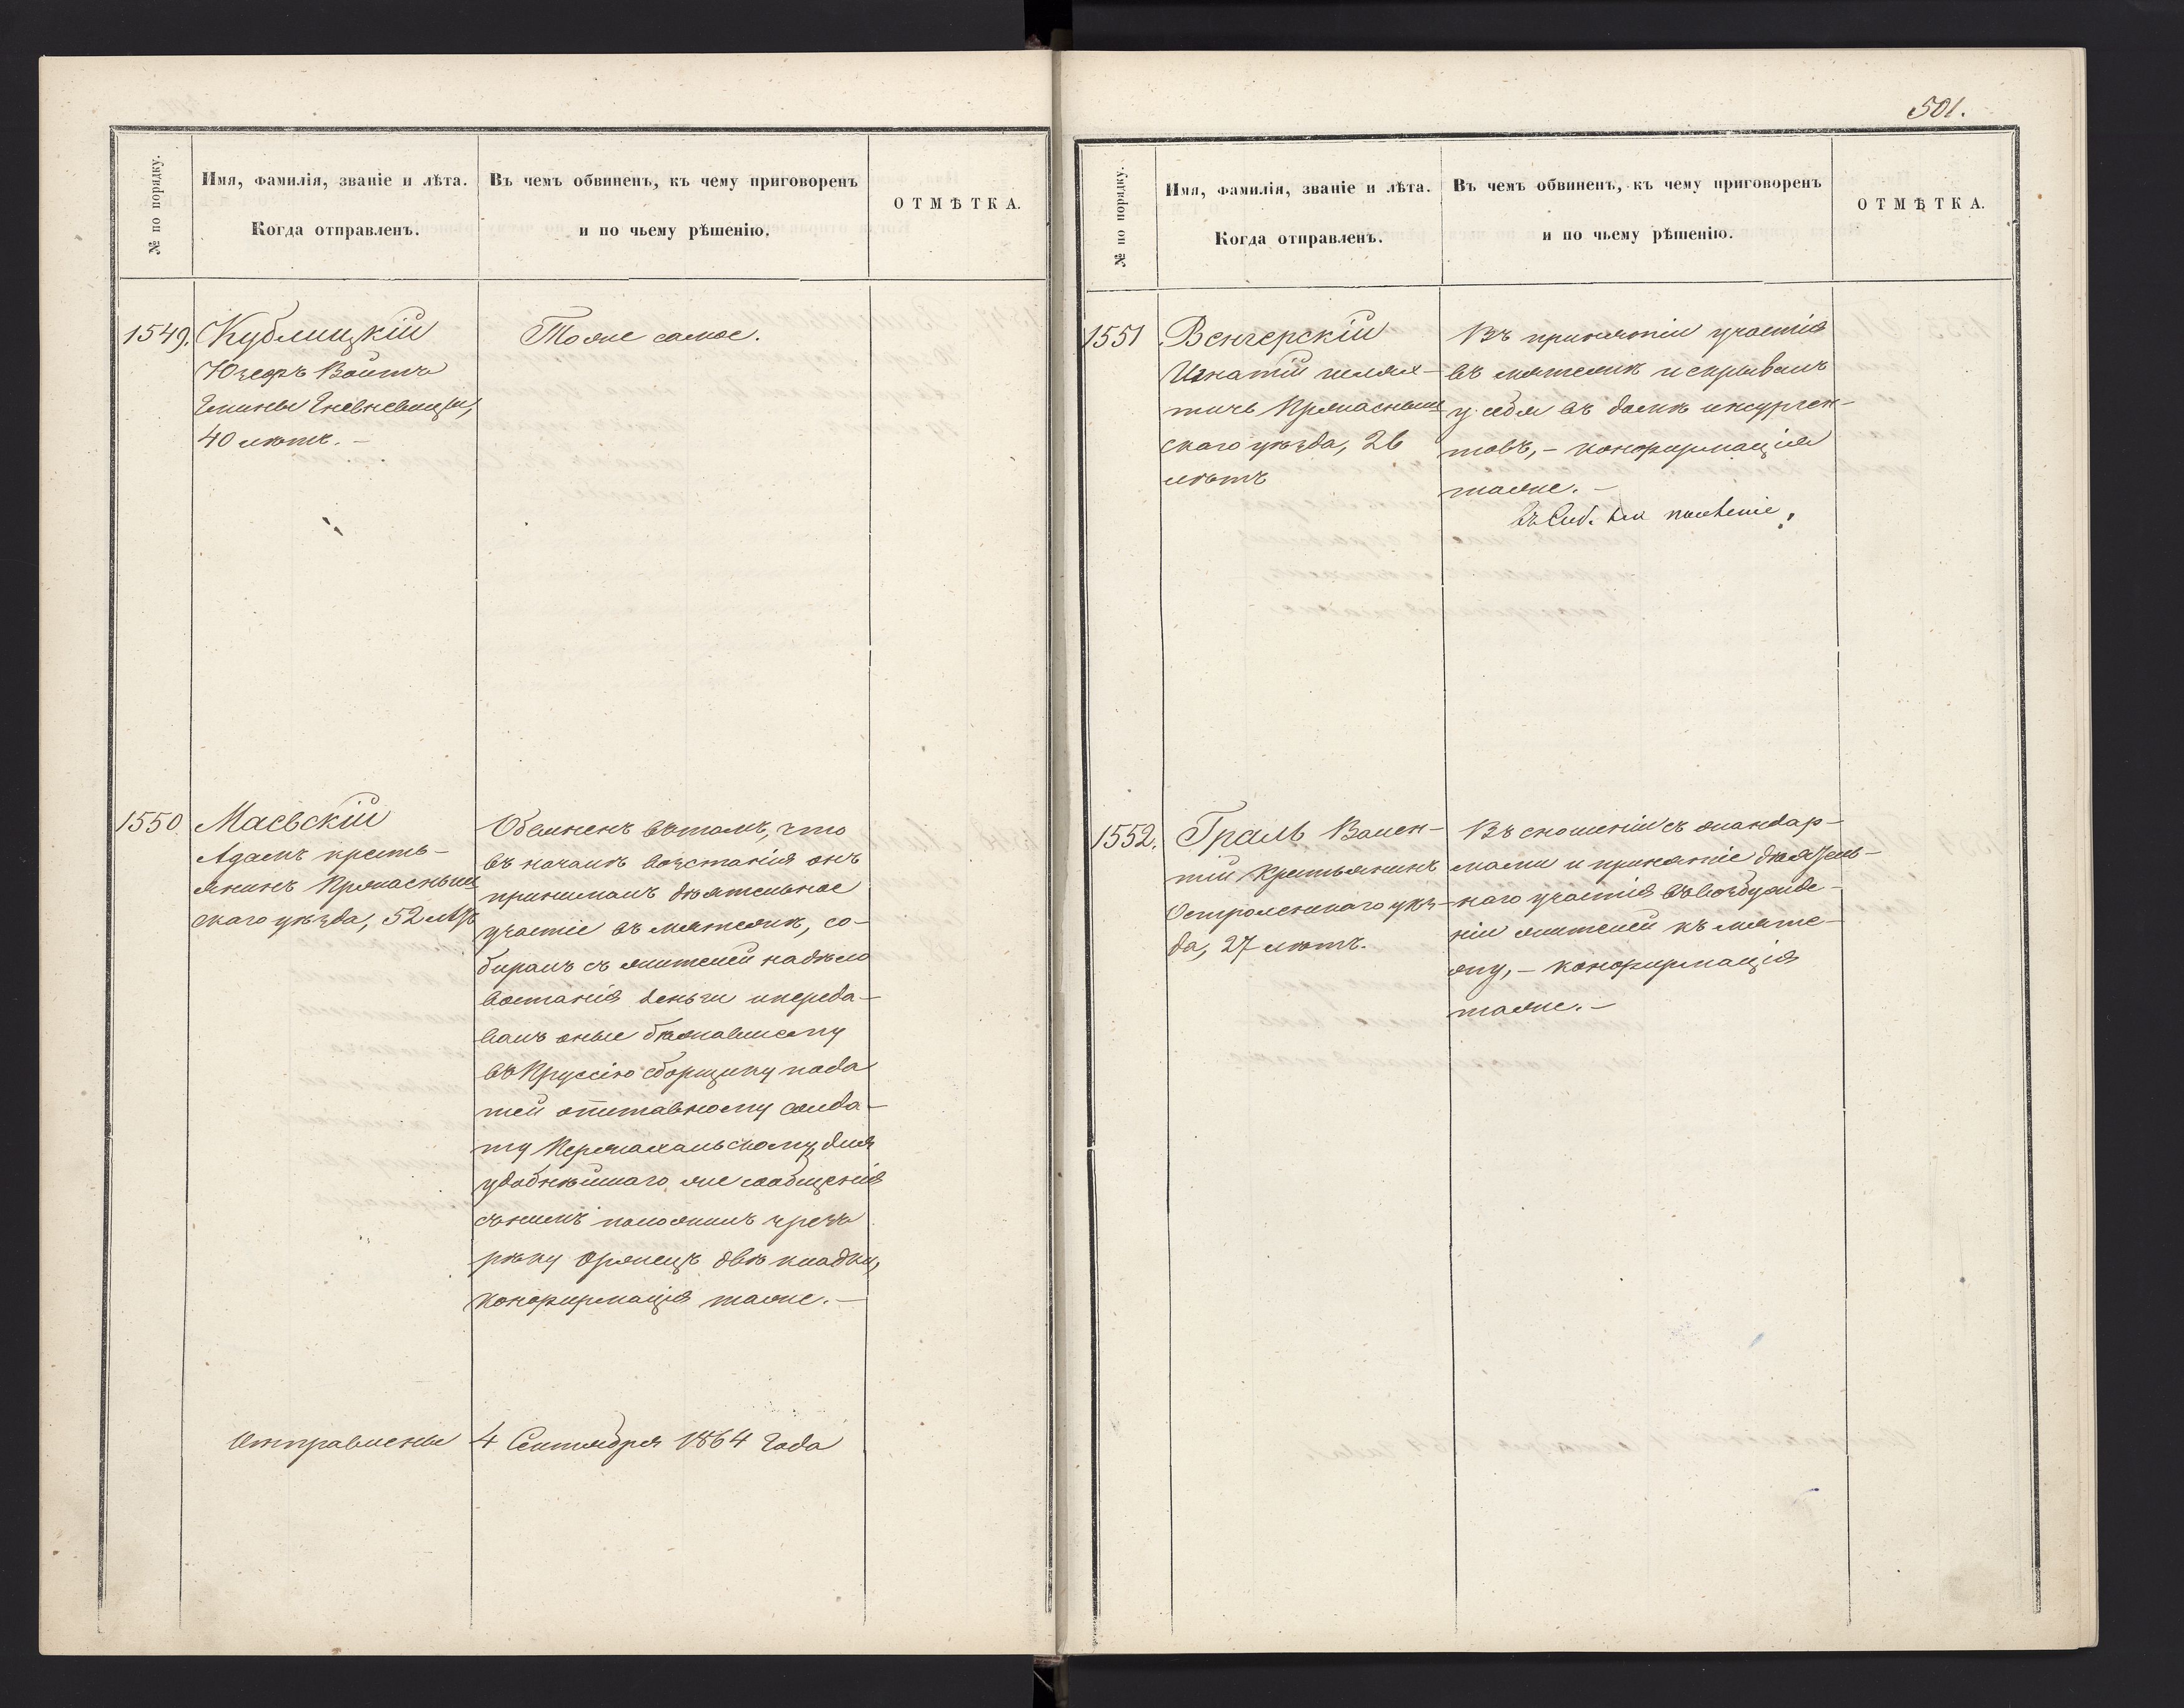 501.
№ по порядку.
Имя, фамилія, званіе и лѣта.
Когда отправленъ.
Въ чемъ обвиненъ, къ чему приговоренъ
и по чьему рѣшенію.
ОТМѢТКА.
1549.
Кублицкій
Юзефъ Войтъ
Гмины Гневневицы,
40 лѣтъ. –
Тоже самое.
1550
Маевскій
Адамъ кресть-
янинъ Пряснышъ
скаго уѣзда, 52 лѣтъ
Обвиненъ въ томъ, что
въ началѣ возстанія онъ
принималъ дѣятельное
участіе въ мятежѣ, со-
биралъ съ жителей на дѣло
востанія деньги и переда-
валъ оные бѣжавшему
въ Пруссію сборщику пода
тей отставному солда-
ту для
удобнѣйшаго же сообщенія
съ нимъ положилъ чрезъ
рѣку Оржецъ двѣ кладки,
конфирмація таже. –
Отправлены 4 Сентября 1864 года
№ по порядку.
Имя, фамилія, званіе и лѣта.
Когда отправленъ.
Въ чемъ обвиненъ, къ чему приговоренъ
и по чьему рѣшенію.
ОТМѢТКА.
1551
Венгерскій
Игнатій шлях-
тичъ Пряснышъ
скаго уѣзда, 26
лѣтъ
Въ принятіи участія
въ мятежѣ и скрывалъ
у себя въ домѣ инсурген-
товъ, – конфирмація
таже. –
въ Сиб. на поселеніе.
1552.
Граль Вален-
тій Крестьянинъ
Остроленскаго уѣз-
да, 27 лѣтъ.
Въ сношеніи съ жандар-
мами и принятіе дѣятель-
наго участія въ возбужде-
ніи жителей къ мяте-
жу, – конфирмація
таже. –